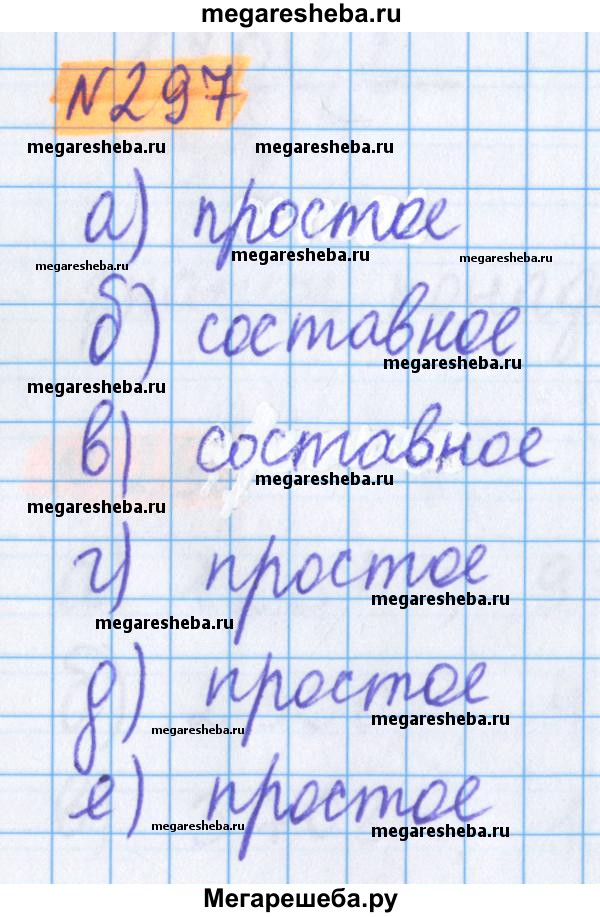 megaresheba.ru
№297
megaresheba.ru megaresheba.ru
а) простое
megaresheba.ru megaresheba.ru
б) составное
megaresheba.ru megaresheba.ru
в) составное
megaresheba.ru
megaresheba.ru
г) простое
megaresheba.ru
megaresheba.ru
д) простое
megaresheba.ru megaresheba.ru
е) простое
megaresheba.ru megaresheba.ru
Мегарешеба.ру